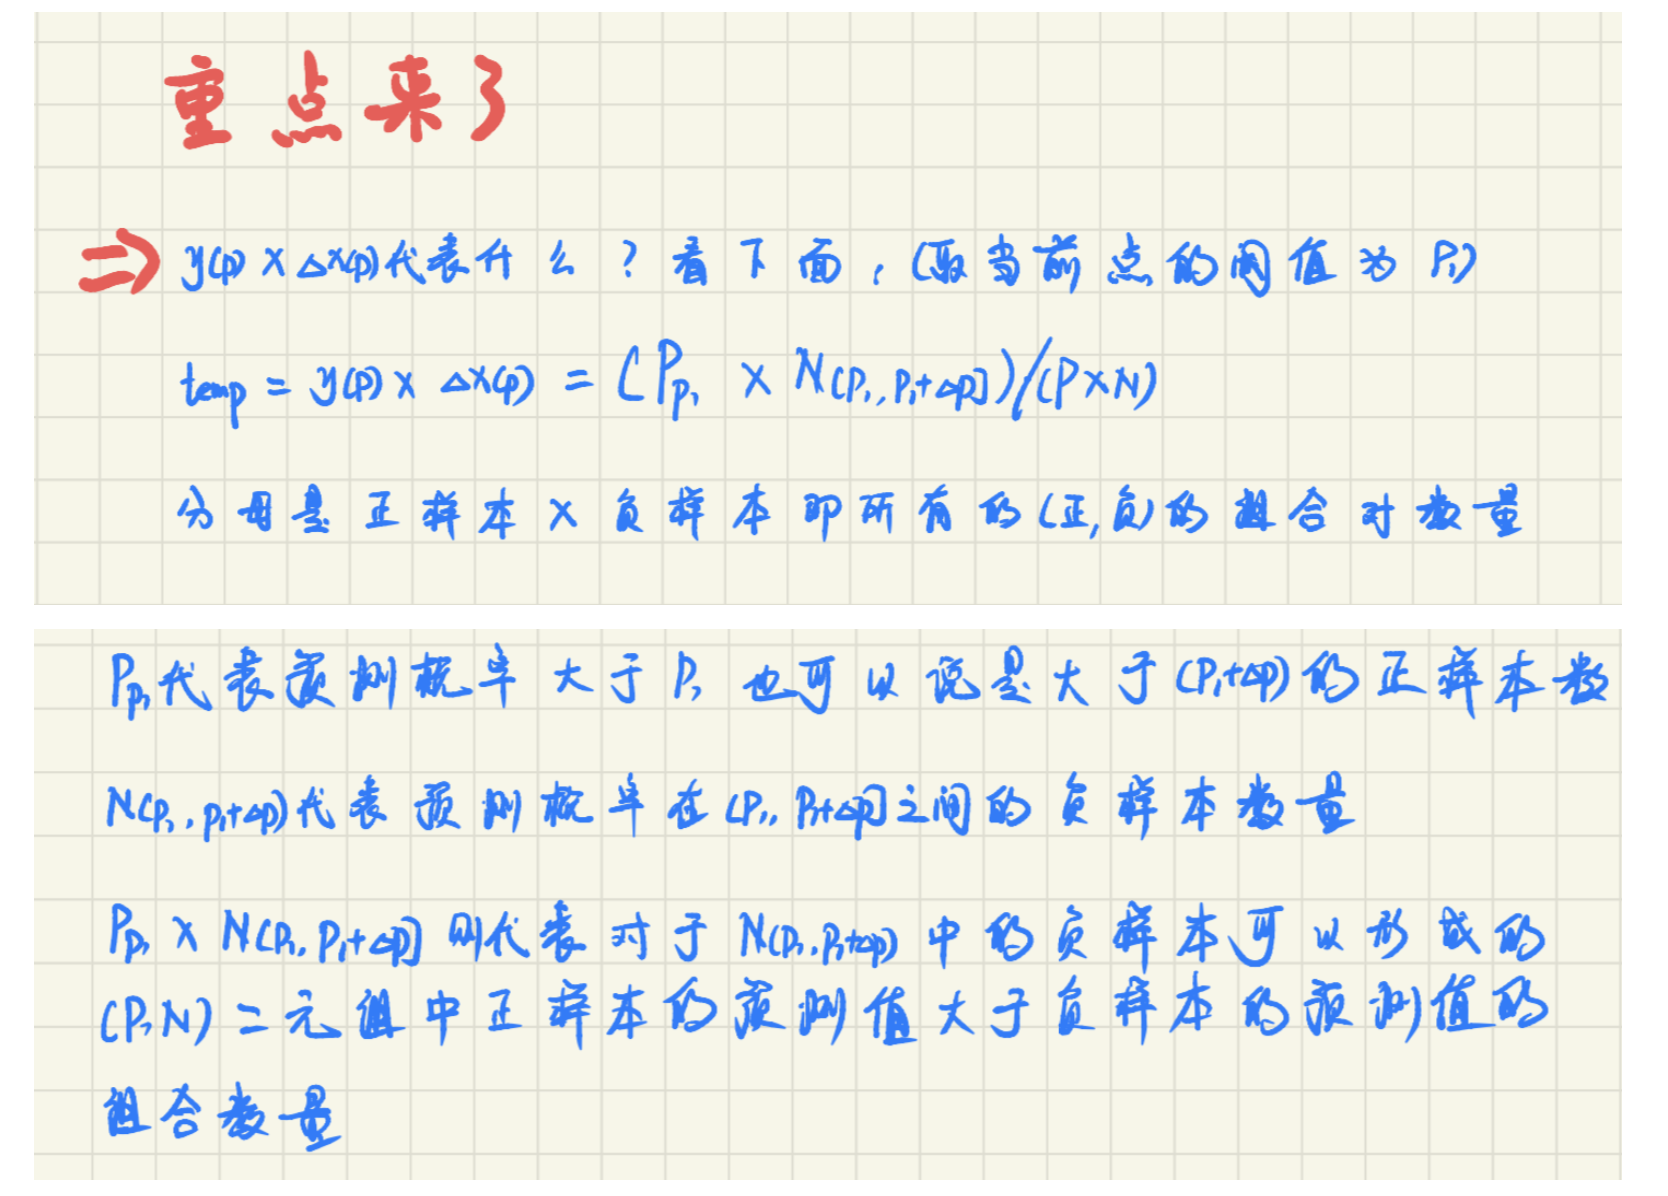 重点来了
⇒ y(p) × △x(p)代表什么？看下面，(取当前点的阈值为 P₁)
temp = y(p) × △x(p) = (P_{p₁} × N(P₁, P₁+△p])/(P×N)
分母是正样本×负样本即所有的(正,负)的组合对数量
P_{p₁}代表预测概率大于P₁也可以说是大于(P₁+△p)的正样本数
N(P₁, p₁+△p)代表预测概率在(P₁, P₁+△p]之间的负样本数量
P_{p₁} × N(P₁, P₁+△p]则代表对于N(P₁, P₁+△p)中的负样本可以形成的
(P,N)二元组中正样本的预测值大于负样本的预测值的
组合数量